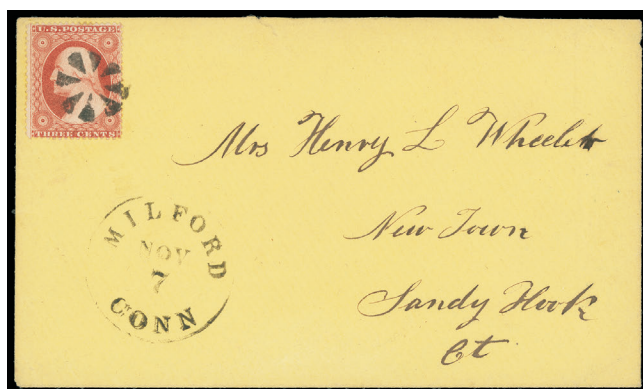 U.S. POSTAGE
THREE CENTS
Mrs Henry L Wheeler
New Town
Sandy Hook
Ct
MILFORD
NOV
7
CONN